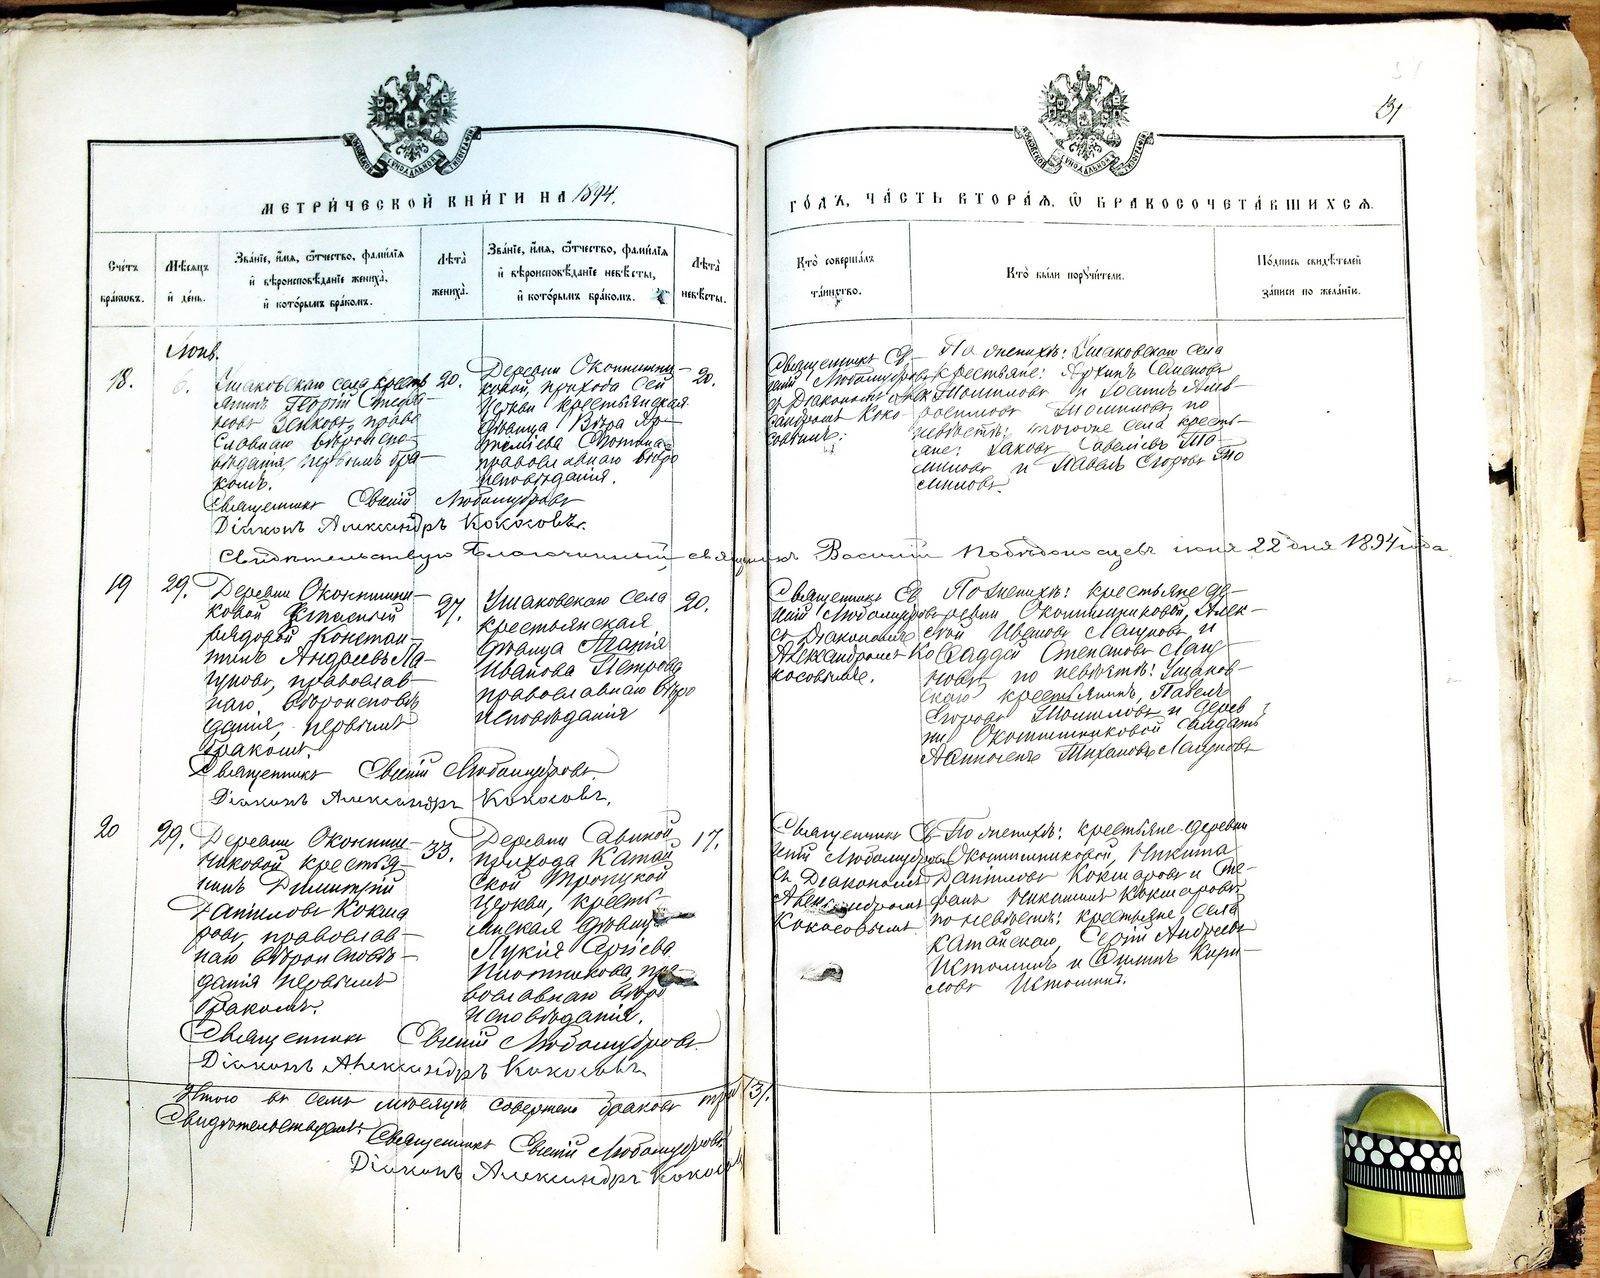 31
МЕТРИ́ЧЕСКОЙ КНИ́ГИ НА 1894.
ГО́ДЪ, ЧА́СТЬ ВТОРА́Я, Ѿ БРАКОСОЧЕТА́ВШИХСЯ.
Сче́тъ бра́ковъ.
Мѣ́сяцъ и де́нь.
Зва́нїе, и́мя, о́тчество, фами́лїя
и вѣроисповѣ́данїе жениха̀,
и кото́рымъ бра́комъ.
Лѣта̀ жениха̀.
Зва́нїе, и́мя, о́тчество, фами́лїя
и вѣроисповѣ́данїе невѣ́сты,
и кото́рымъ бра́комъ.
Лѣта̀ невѣ́сты.
Кто̀ соверша́лъ
та́инство.
Кто̀ бы́ли поручи́тели.
По́дпись свидѣ́телей
за́писи по жела́нїю.
Іюнь.
18.
6.
Ушаковскаго села кресть
янинъ Георгій Стефа
новъ право
славнаго вѣроиспо-
вѣданія, первымъ бра-
комъ.
20.
Деревни Окотишни-
ковой, прихода сей
церкви крестьянская
дѣвица Вѣра Ар-
православнаго вѣро
исповѣданія.
20.
Священникъ Ев-
геній Любомудровъ
съ Діакономъ Алек
сандромъ Коко
совымъ.
По женихѣ: Ушаковскаго села
крестьяне: Архипъ Семеновъ
Томиловъ и
Томиловъ, по
невѣстѣ: того же села кресть-
яне: Іаковъ Савельевъ То-
миловъ и Павелъ Егоровъ То
миловъ.
Священникъ Евгеній Любомудровъ
Діаконъ Александръ Кокосовъ.
Свидѣтельствую Благочинный, священникъ Василій Побѣдоносцевъ іюня 22 дня 1894 года
19
29.
Деревни Окотишни-
ковой запасный
рядовой Констан-
тинъ Андреевъ Ла-
гуновъ, православ-
наго вѣроисповѣ
данія, первымъ
бракомъ.
27.
Ушаковскаго села
крестьянская
дѣвица Агапія
Иванова Петрова
православнаго вѣро
исповѣданія
20.
Священникъ Ев
геній Любомудровъ
съ Діакономъ
Александромъ Ко
косовымъ.
По женихѣ: крестьяне де-
ревни Окотишниковой, Алек-
сѣй Ивановъ Лагуновъ и
Фаддей Степановъ Лагу-
новъ по невѣстѣ: Ушаков-
скаго крестьянинъ, Павелъ
Егоровъ Томиловъ и дерев
ни Окотишниковой солдатъ
Тихановъ Лагуновъ
Священникъ Евгеній Любомудровъ.
Діаконъ Александръ Кокосовъ.
20
29.
Деревни Окотиш-
никовой крестья-
нинъ Димитрій
Даніиловъ Кокша
ровъ, православ-
наго вѣроисповѣ-
данія первымъ
бракомъ.
33.
Деревни Савиной
прихода Катай
ской Троицкой
церкви, кресть-
янская дѣвица
Лукія Сергіева
Плотникова, пра-
вославнаго вѣро
исповѣданія.
17.
Священникъ Ев
геній Любомудровъ
съ Діакономъ
Александромъ
Кокосовымъ
По женихѣ: крестьяне деревни
Окотишниковой, Никита
Даніиловъ Кокшаровъ и Сте-
фанъ Никитинъ Кокшаровъ
по невѣстѣ: крестьяне села
Катайскаго, Сергій Андреевъ
Истоминъ и Кири-
ловъ Истоминъ.
Священникъ Евгеній Любомудровъ.
Діаконъ Александръ Кокосовъ
Итого въ семъ мѣсяцѣ совершено браковъ три /3/.
Свидѣтельствуемъ:
Священникъ Евгеній Любомудровъ
Діаконъ Александръ Кокосовъ